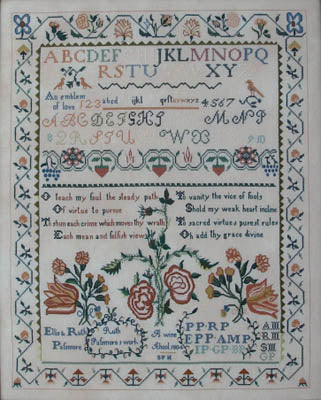 ABCDEF JKLMNOPQ
RSTU XY
An emblem
of love 123 abcd ijkl qrstuvwxyz 4567
ABCDEFGHI MNP
2RSTU WX 9 10
O teach my soul the steady path
Of virtue to pursue
To shun each crime which moves thy wrath
Each mean and selfish view
To vanity the vice of fools
Shold my weak heart incline
Thy sacred virtues purest rules
Oh add thy grace divine
Ruth
Palsmore
Ruth
Palsmore s work
PP·RP
EPP·AMP
IP·GP
AIII
RIII
SIII
GP